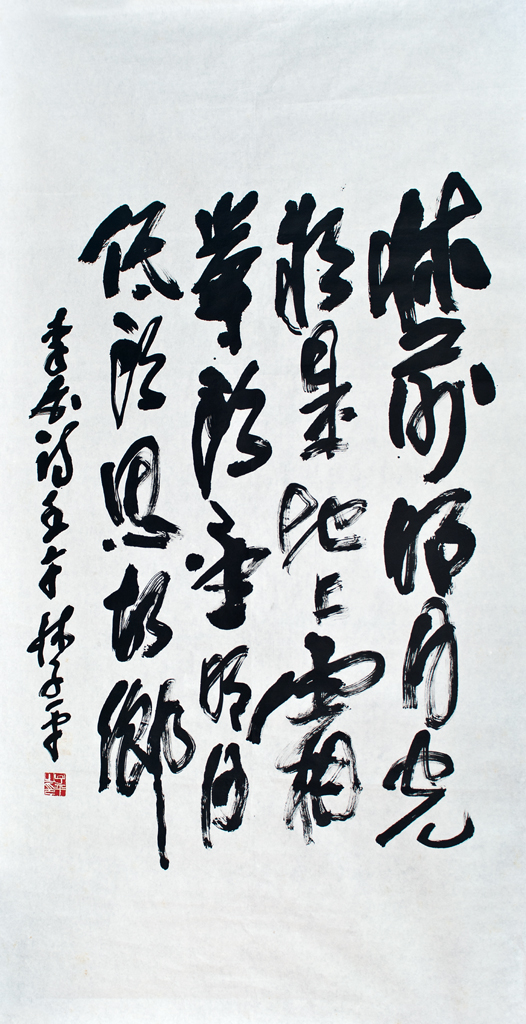 床前明月光
疑是地上霜
举头望明月
低头思故乡
李白诗壬午林子平